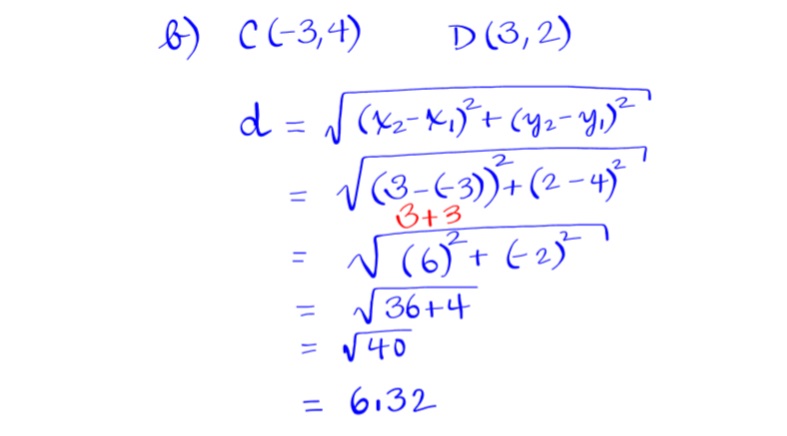 b) C(-3,4) D(3,2)
d = √(x₂-x₁)²+(y₂-y₁)²
= √(3-(-3))²+(2-4)²
3+3
= √(6)²+(-2)²
= √36+4
= √40
= 6.32